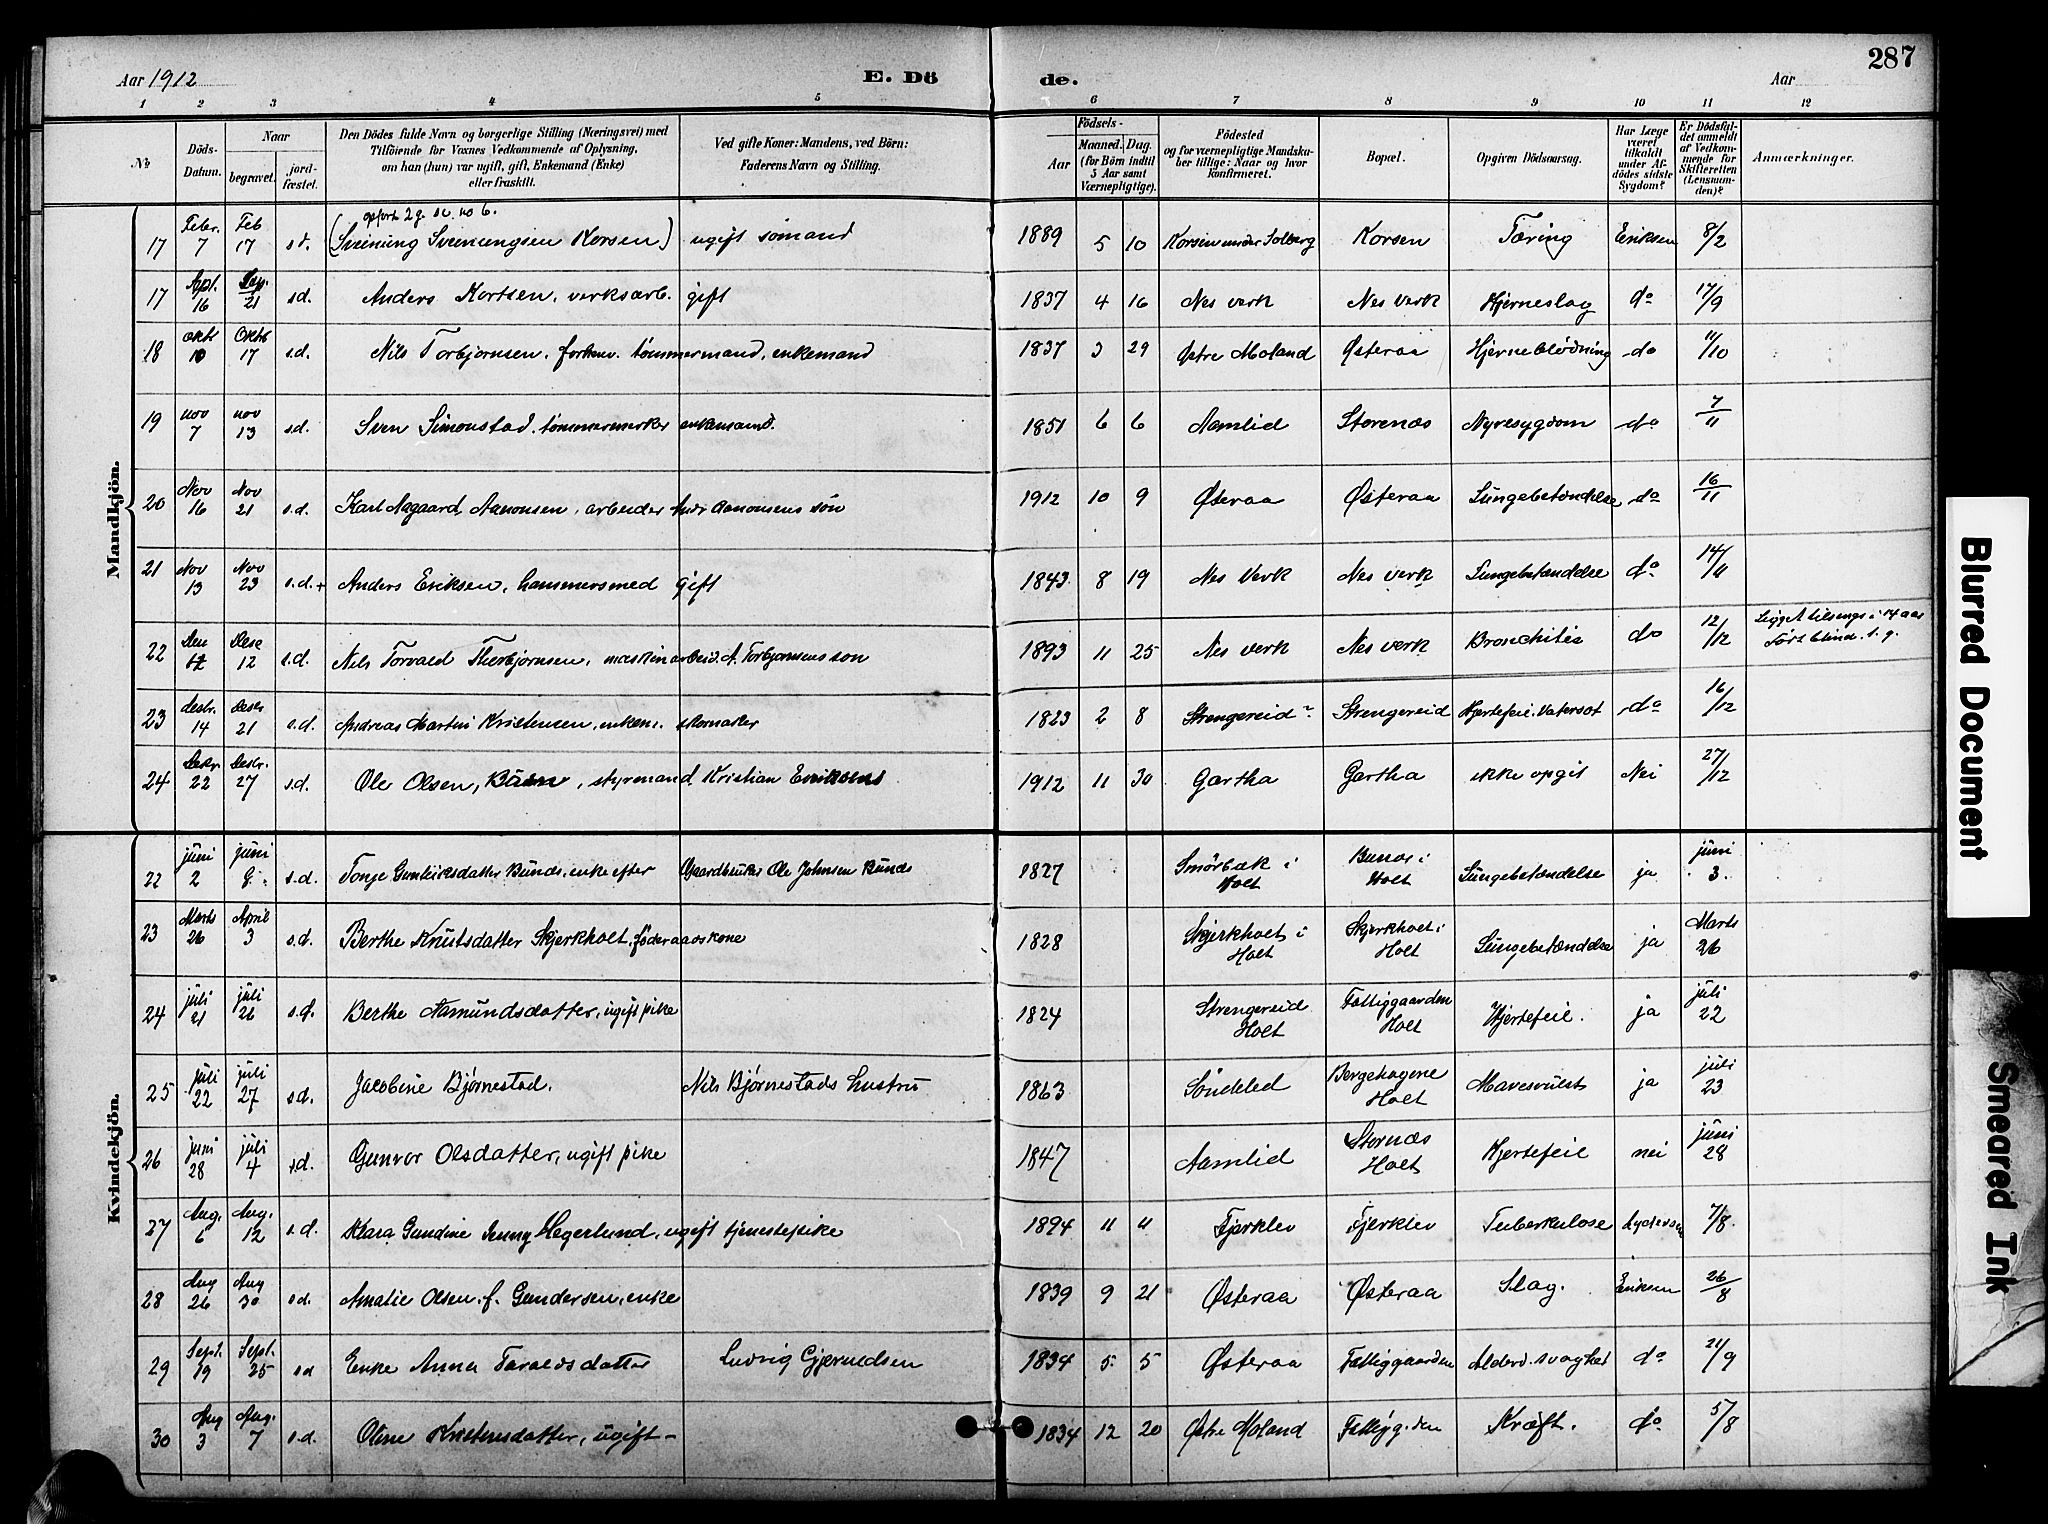 287
Aar 1912 E. Dö de. Aar
1 2 3 4 5 6 7 8 9 10 11 12
No
Döds-Datum.
Naar
begravet.
jord-fæstet.
Den Dödes fulde Navn og borgerlige Stilling (Næringsvei) med
Tilföiende for Voxnes Vedkommende af Oplysning,
om han (hun) var ugift, gift, Enkemand (Enke)
eller fraskilt.
Ved gifte Koner: Mandens, ved Börn:
Faderens Navn og Stilling.
Födsels-
Aar
Maaned. Dag.
(for Börn indtil
5 Aar samt
Værnepligtige).
Födested
og for værnepligtige Mandska-
ber tillige: Naar og hvor
konfirmeret.
Bopæl.
Opgiven Dödsaarsag.
Har Læge
været
tilkaldt
under Af-
dödes sidste
Sygdom?
Er Dödsfal-
det anmeldt
af Vedkom-
mende for
Skifteretten
(Lensman-
den)?
Anmærkninger.
Mandkjön.
17 Febr. 7 Feb 17 s.d. (Sveinung Sveinungsen Korsen) ugift sömand 1889 5 10 Korsen under Solberg Korsen Tæring Eriksen 8/2
17 16 21 s.d. Anders Kortsen, verksarb. gift 1837 4 16 Nes verk Nes verk Hjerneslag do 17/9
18 Oktb 10 Oktb 17 s.d. Nils Torbjørnsen, forhenv. tømmermand, enkemand 1837 3 29 Østre Moland Østeraa Hjerneblødning do 11/10
19 nov 7 nov 13 s.d. Sven Simonstad, tømmermerker enkemand. 1851 6 6 Aamlid Storenæs Nyresygdom do 7/11
20 Nov 16 Nov 21 s.d. Karl Aagaard Aanonsen, arbeider Andr Aanonsens søn 1912 10 9 Østeraa Østeraa Lungebetændelse do 16/11
21 Nov 13 Nov 23 s.d. Anders Eriksen, hammersmed gift 1843 8 19 Nes Verk Nes verk Lungebetændelse do 14/11
22 12 Dese 12 s.d. Nils Torvald Thorbjørnsen, maskinarbeid. N. Torbjørnsens søn 1893 11 25 Nes verk Nes verk Bronchitis do 12/12 Ligget tilsengs i 14 aar
23 Desbr. 14 21 s.d. Andreas Martin Kristensen, enkem. 1823 2 8 Strengereid Strengereid Hjertefeil. Vatersot do 16/12
24 22 Desbr. 27 s.d. Ole Olsen, styrmand Kristian Eriksens 1912 11 30 Gartha Gartha ikke opgit Nei 27/12
Kvindekjön.
22 juni 2 juni 9 s.d. Tonje Bunæs, enke efter Gaardbruker Ole Johnsen Bunæs 1827 Smörbæk i Holt Bunæs i Holt Lungebetændelse ja juni 3.
23 Marts 26 April 3 s.d. Berthe Knutsdatter Skjerkholt, føderaadskone 1828 Skjerkholt i Holt Skjerkholt i Holt Lungebetændelse ja Marts 26
24 juli 21 juli 26 s.d. Berthe Aamundsdatter, ugift pike 1824 Strengereid Holt Fattiggaarden Holt Hjertefeil. ja juli 22
25 juli 22 juli 27 s.d. Jacobine Bjørnestad. Nils Bjørnestads hustru 1863 Søndeled Bergehagene Holt Mavesvulst ja juli 23
26 juni 28 juli 4 s.d. Gunvor Olsdatter, ugift pike 1847 Aamlid Stornæs Holt Hjertefeil nei juni 28
27 Aug. 6 Aug. 12 s.d. Klara Gundine Jenny Hegerlund, ugift tjenestepike 1894 11 11 Fjerklev Fjerklev Tuberkulose 7/8
28 Aug 26 Aug 30 s.d. Amalie Olsen, f. Gundersen, enke 1839 9 21 Østeraa Østeraa Slag. Eriksen 26/8
29 Sept. 19 Sept. 25 s.d Enke Anna Taraldsdatter Ludvig Gjerulfsen 1834 5 5 Østeraa Fattiggaarden Alderd. svaghet do 21/9
30 Aug 3 Aug. 7 s.d. Oline Kristensdatter, ugift 1834 12 20 Østre Moland Fattigg.den Kræft. do 5/8
Blurred Document
Smeared Ink